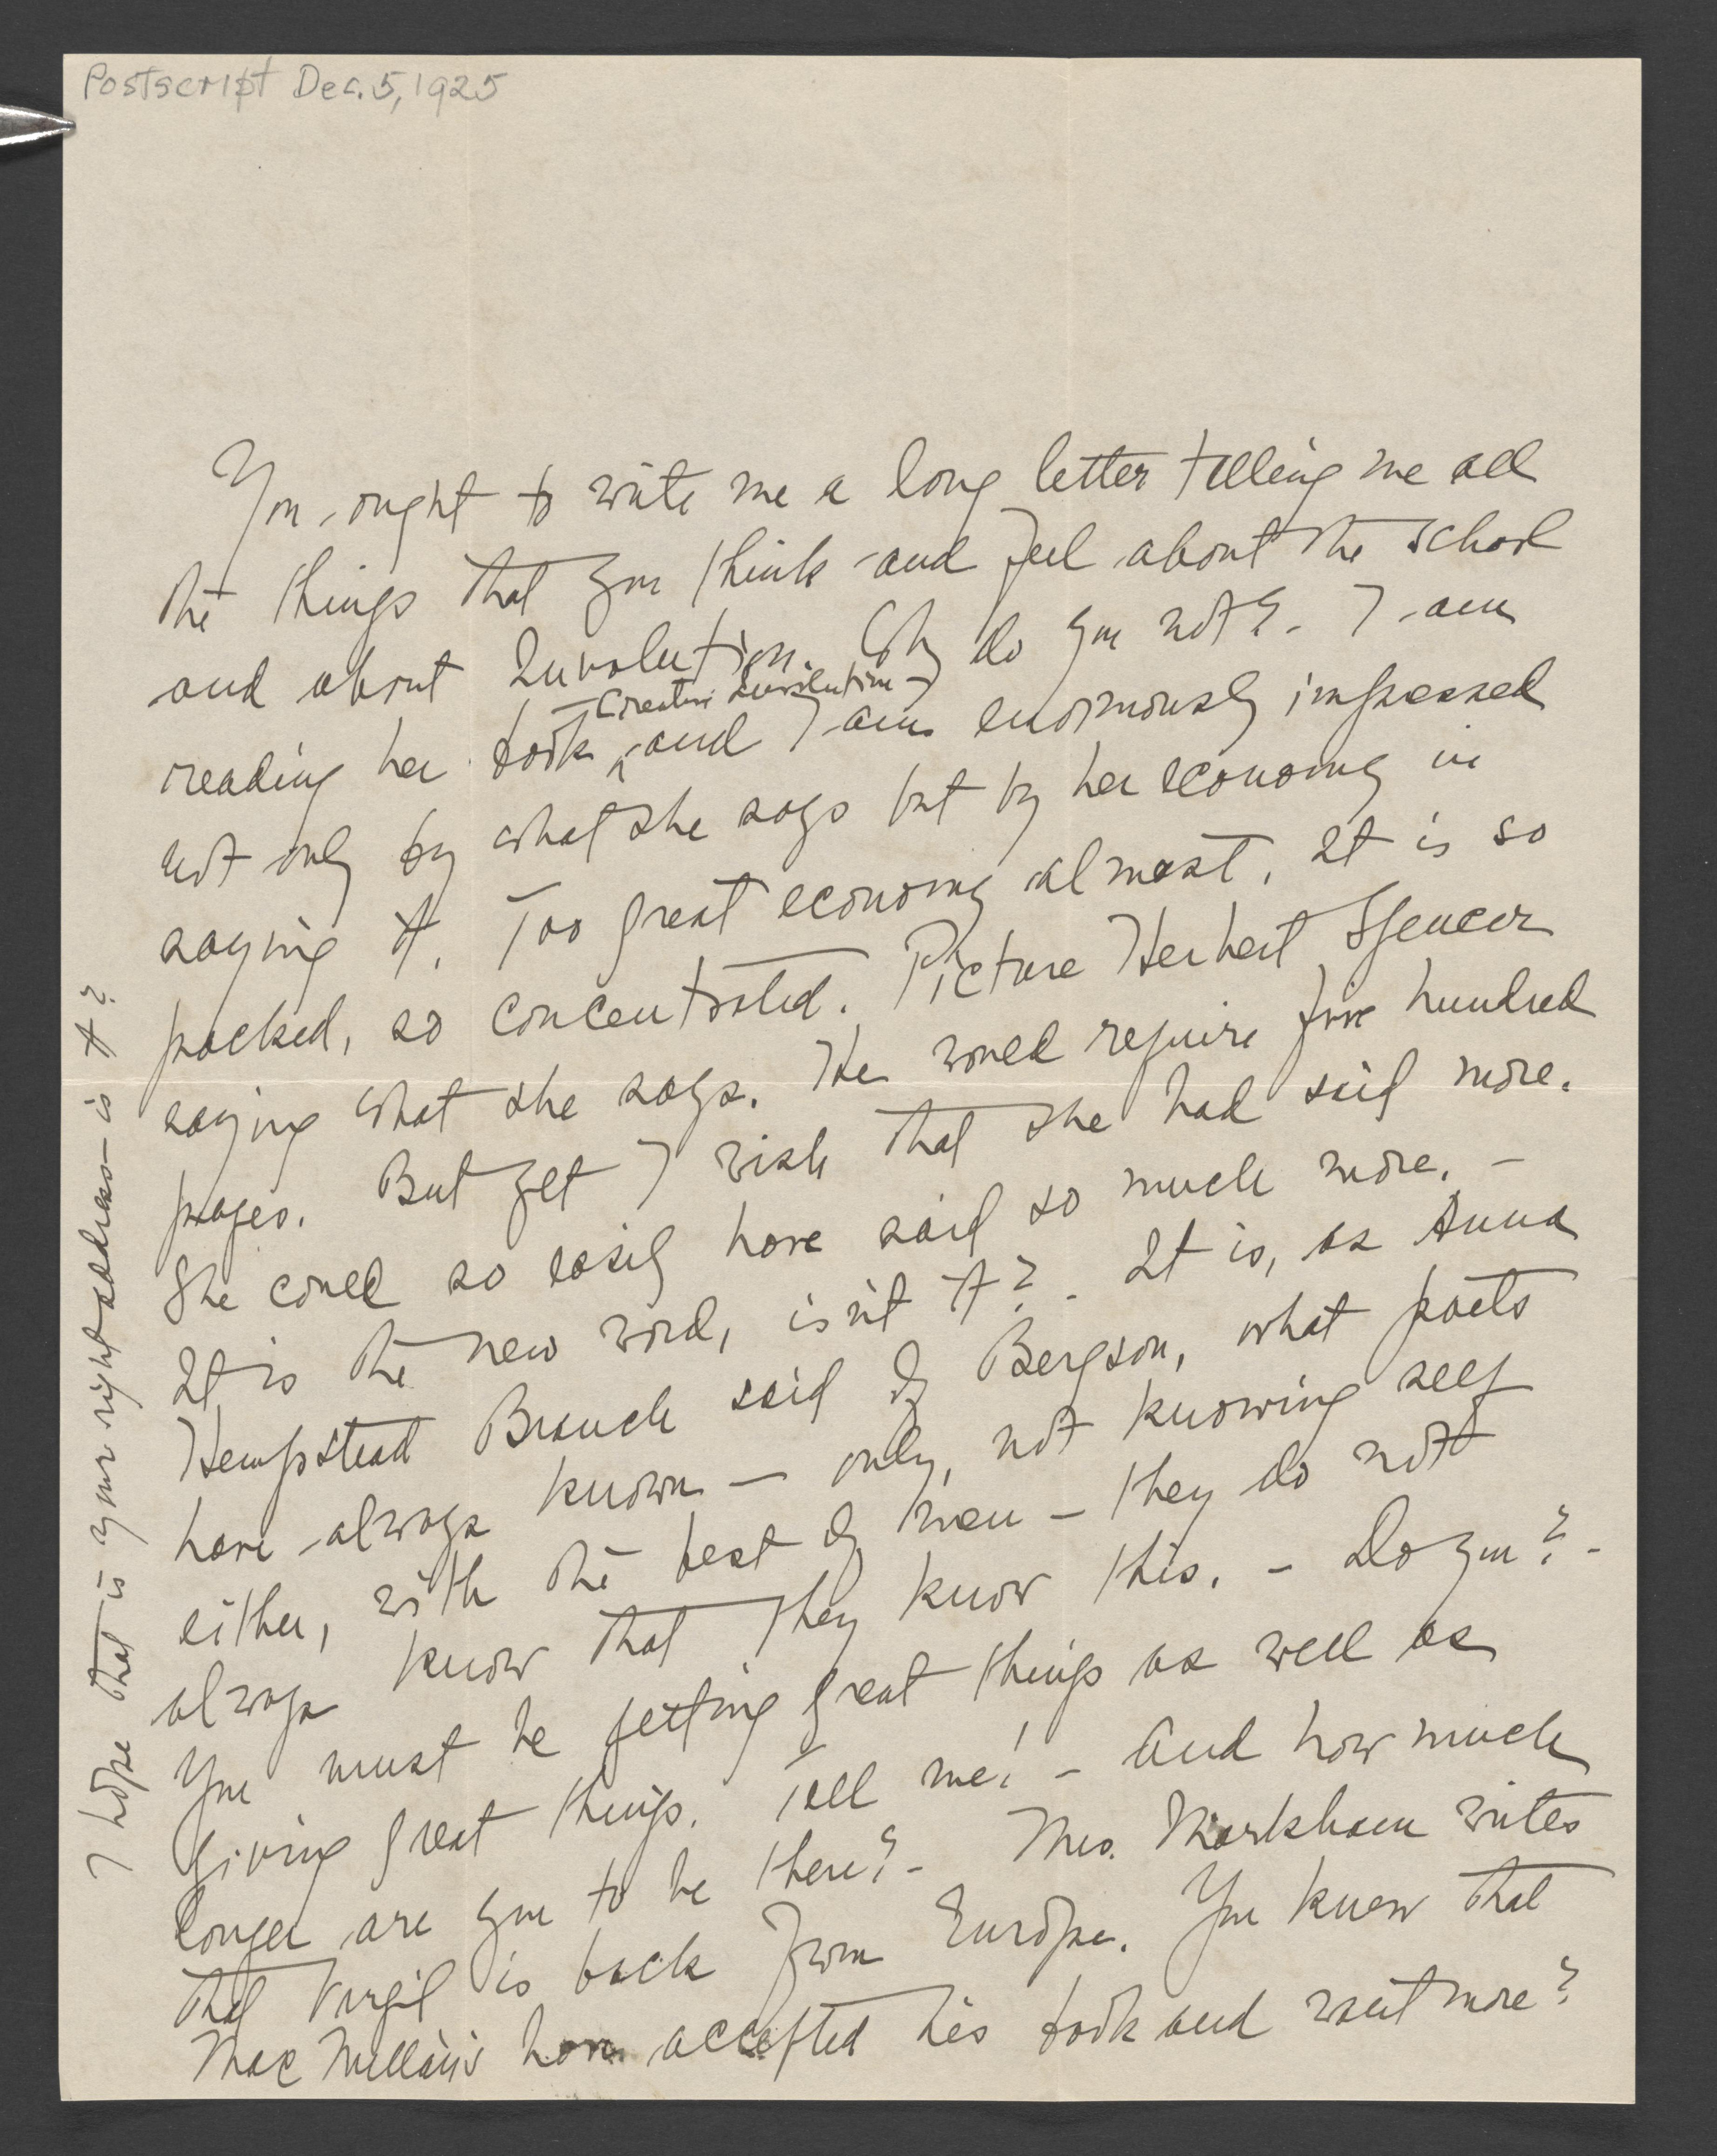 Postscript Dec. 5, 1925
You ought to write me a long letter telling me all
the things that you think and feel about the school
and about Involution. Why do you not? - I am
- Creative Involution -
reading her book, and I am enormously impressed
not only by what she says but by her economy in
saying it. Too great economy almost. It is so
packed, so concentrated. Picture Herbert Spencer
saying what she says. He would require five hundred
pages. But yet I wish that she had said more.
She could so easily have said so much more. -
It is the new word, isn't it? - It is, as Anna
Hempstead Branch said of Bergson, what poets
have always known - only, not knowing self
either, with the best of men - they do not
always know that they know this. - Do you? -
You must be getting great things as well as
giving great things. Tell me! - And how much
longer are you to be there? - Mrs. Markham writes
that Virgil is back from Europe. You knew that
MacMillan's have accepted his book and want more?
I hope that is your right address - is it?